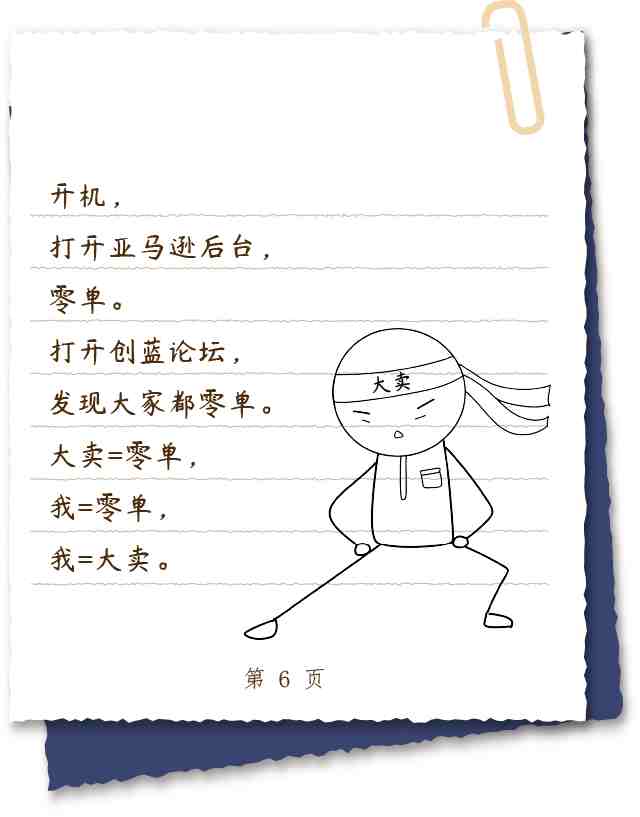 开机，
打开亚马逊后台，
零单。
打开创蓝论坛，
发现大家都零单。
大卖=零单，
我=零单，
我=大卖。
大卖
第 6 页